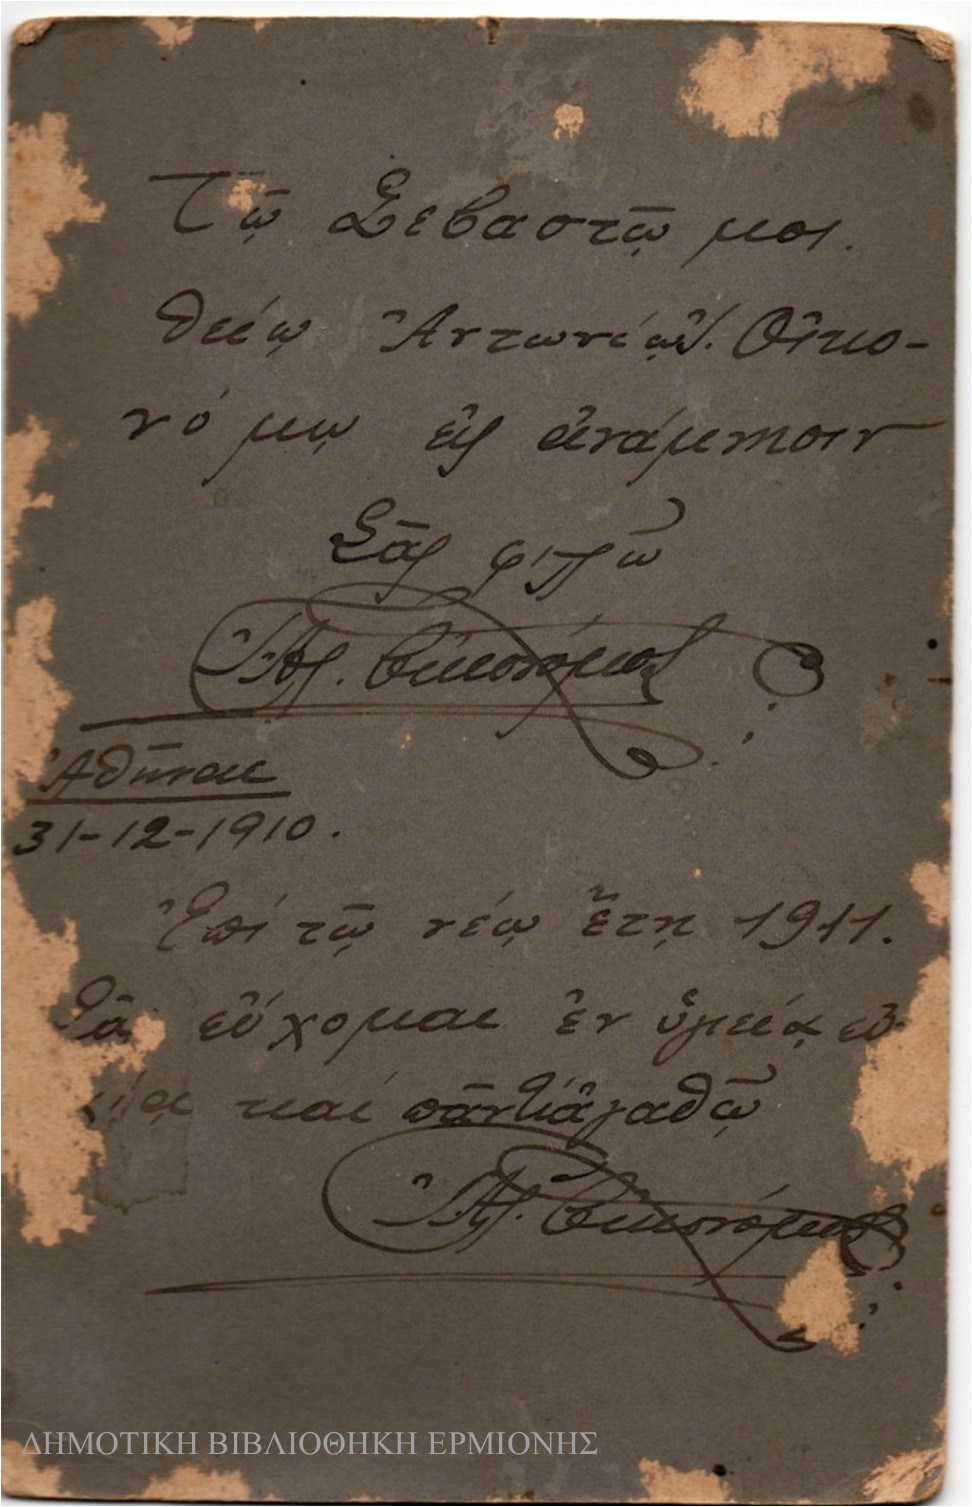 Τῷ Σεβαστῷ μοι.
θείῳ Ἀντωνίῳ Οἰκο-
νόμῳ εἰς ἀνάμνησιν
Σᾶς φιλῶ
Ἀγ. Οἰκονόμος
Ἀθῆναι
31-12-1910.
Ἐπί τῷ νέῳ ἔτῃ 1911.
Σᾶς εὔχομαι ἐν ὑγιείᾳ
καί πᾶν τί ἀγαθῶ
Ἀγ. Οἰκονόμος
ΔΗΜΟΤΙΚΗ ΒΙΒΛΙΟΘΗΚΗ ΕΡΜΙΟΝΗΣ